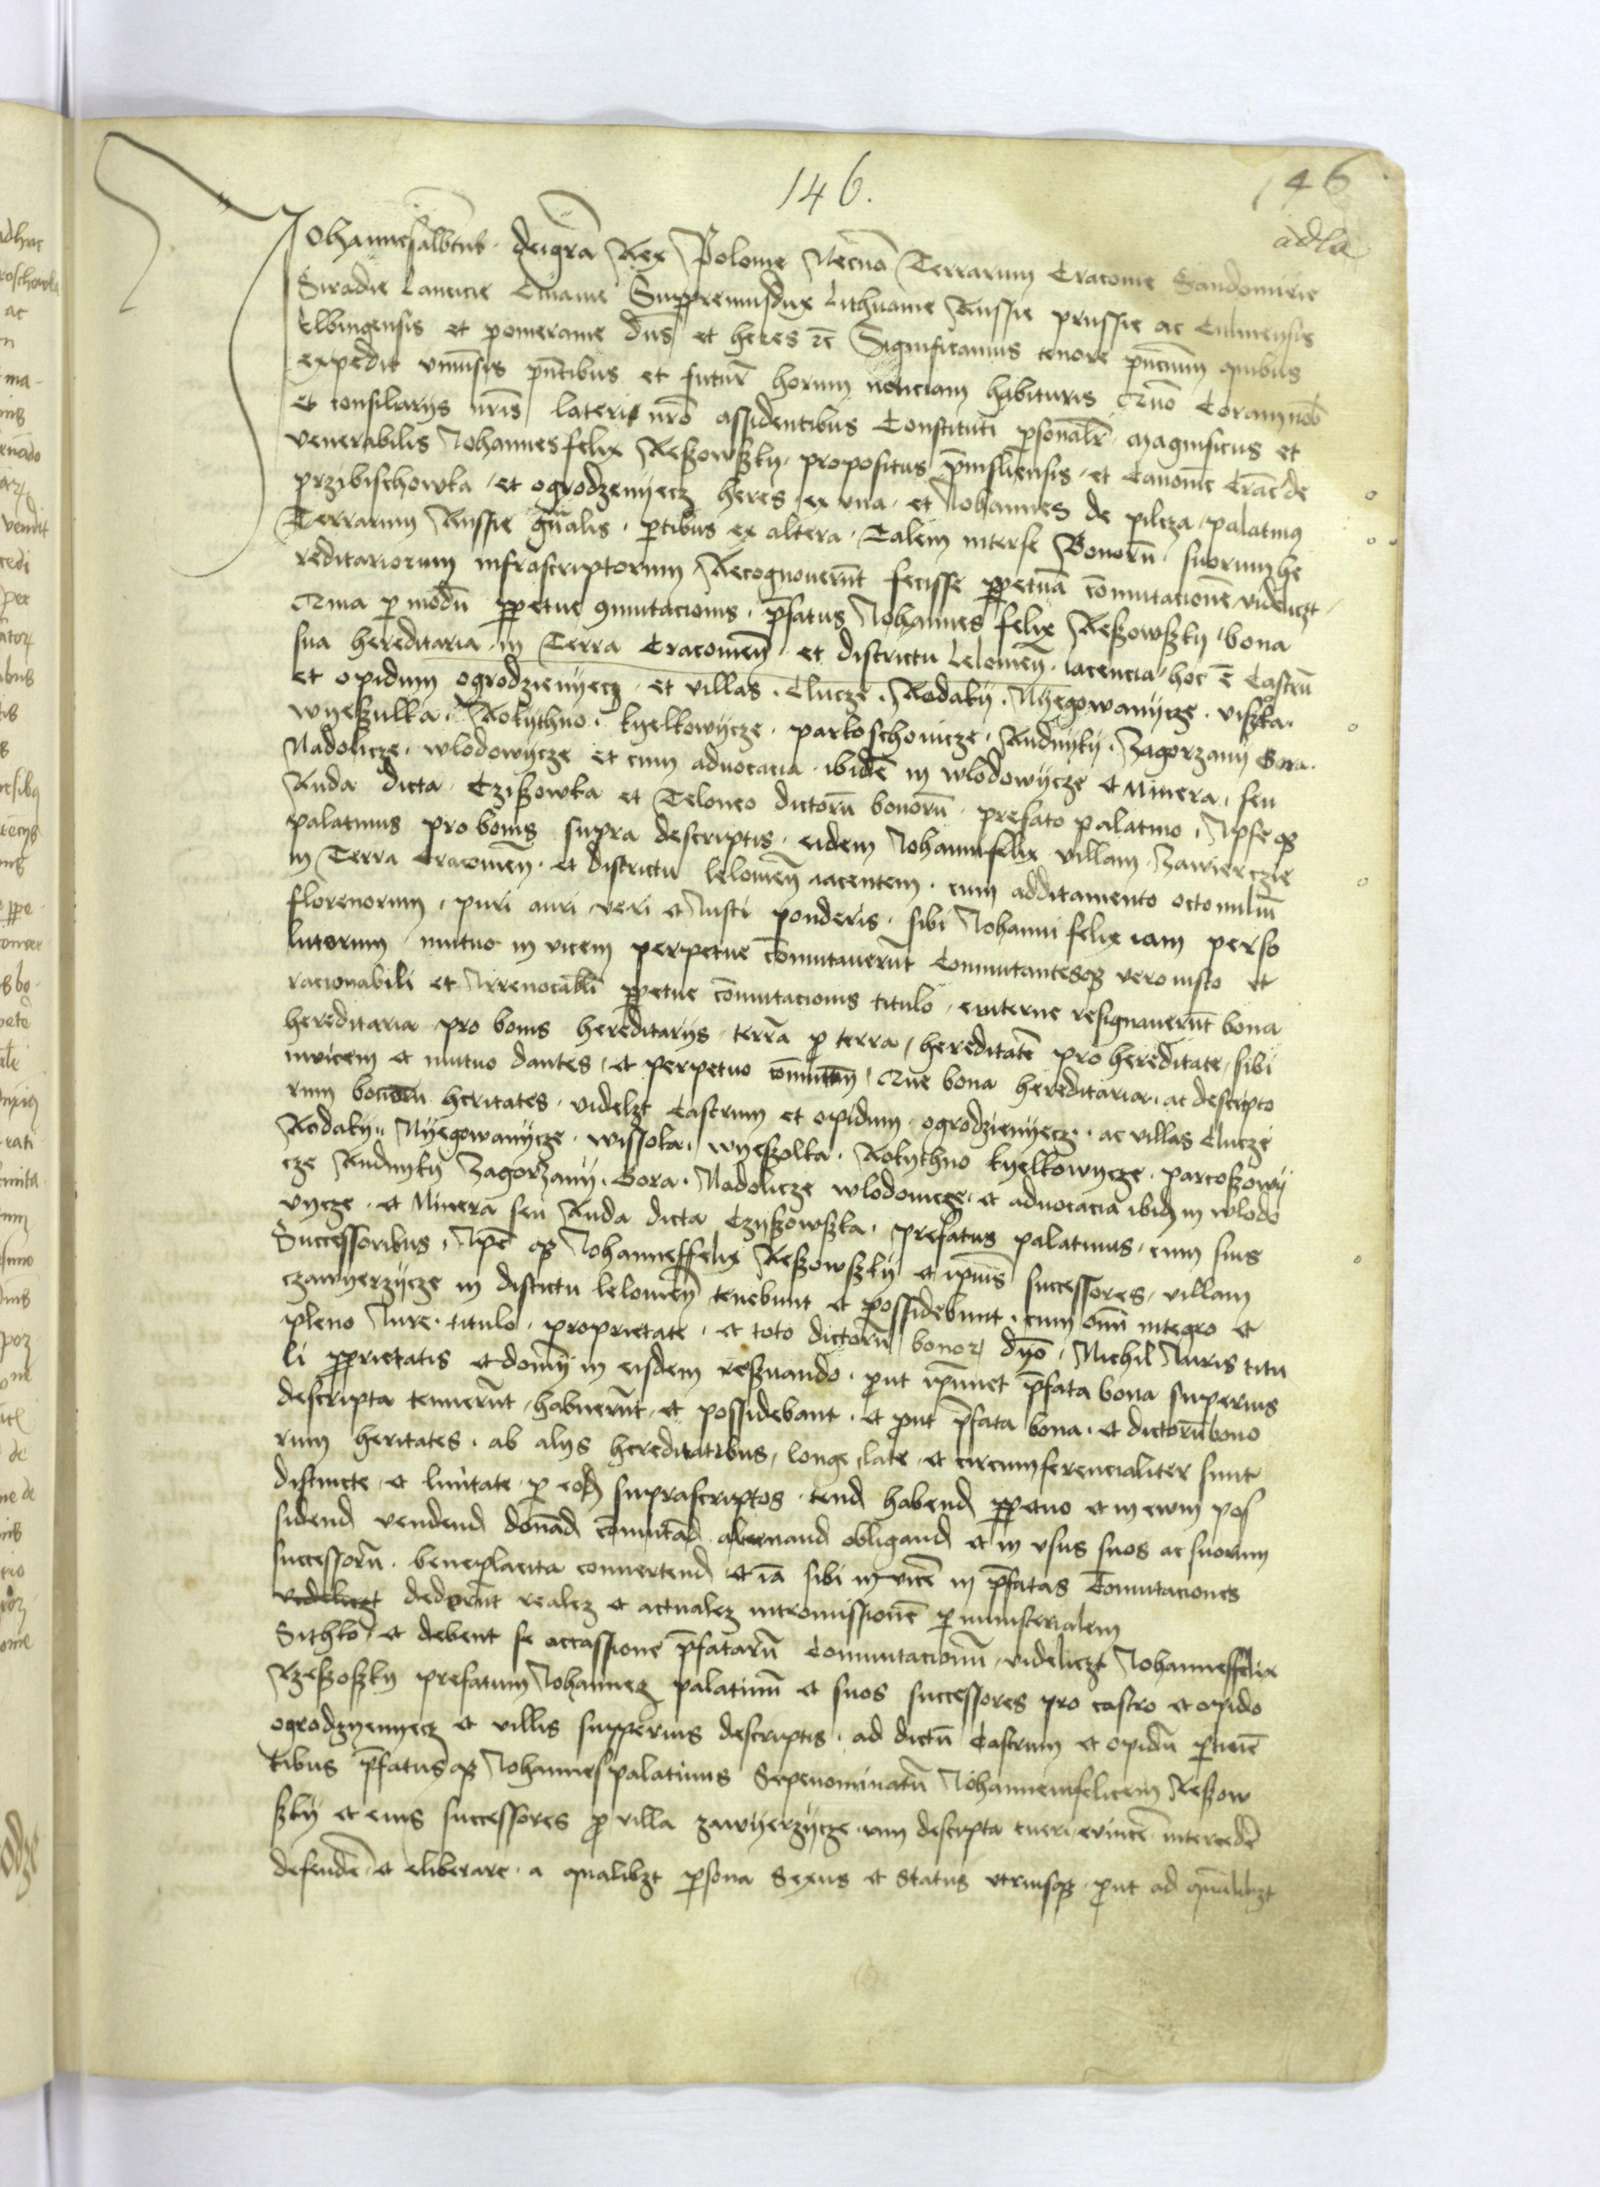 146.
146
adla
Johannes albtus deigra Rex Polonie Necno Terrarum Cracouie Sandomirie
Siradie Lancicie Cuiauie Suppremusdux Lithuanie Russie prussie ac Culmensis
Elbingensis et pomeranie dns et heres zc Significamus tenore pncium quibus
expedit vniusis pntibus et futur horum noticiam habituris Quo Coram nob
et consilarijs nris lateri nro assidentibus Constituti psonalr magnificus et
venerabilis Johannesfelix Reszowsky propositus pmisliensis et Canonic Crac de
przibischowka et ogrodzenyecz heres ex vna et Johannes de pilcza palatinq
Terrarum Russie gnalis ptibus ex altera Talem interse Bonoru suorum he
reditariorum infrascriptorum Recognouerut fecisse ppetua comutacione videliczt
Quia p modu ppetue 9mutacionis pfatus Johannes felix Reszowszky bona
sua hereditaria in Terra Cracouien et districtu Lelouien iacencia hoc e Castru
et opidum ogrodzienyecz et villas Clucze Rodaky Nyegowanycze viszka
wyeszulka Rokythno kyelkowycze parkoschouicze Rudnyky Zagorzany Gora
Nadolicze wlodowycze et cum aduocacia ibide in wlodowycze et Minera seu
Ruda dicta Cziszowka et Teloneo dictoru bonoru prefato palatino Ipse q3
palatinus pro bonis supra descriptis eidem Johannifelix villam Zawierczie
in Terra Cracouien et districtu lelouien iacentem cum additamento octomiliu
florenorum puri auri veri et Iusti ponderis sibi Johanni felix iam perso
lutorum mutuo in vicem perpetue comutauerut Commutantesq3 vero iusto et
racionabili et Irreuocabli ppetue comutacionis titulo euiterne resignauerut bona
hereditaria pro bonis hereditarijs terra p terra hereditate pro hereditate sibi
inuicem et mutuo dantes et perpetuo comutan Que bona hereditaria ac descripto
rum bonoru heritates videlzt Castrum et opidum ogrodzienyecz ac villas Clucze
Rodaky Nyegowanycze wissoka wyeszolka Rokythno kyelkowycze parcoszowy
cze Rudnyky Zagorzany Gora Nadolicze wlodouicze et aduocacia ibid in wlodo
vycze et Minera seu Ruda dicta Czyszowska prefatus palatinus cum suis
Successoribus Ipe q3 Johanneffelix Reszowszky et ipius successores villam
czawyerzycze in districtu lelouien tenebunt et possidebunt cum omni integro et
pleno Iure titulo proprietate et toto dictoru bonor dnio Nichil Iuris titu
li pprietatis et domy in eisdem reseruando put ipimet pfata bona superius
descripta tenuerut habuerut et possidebant et put pfata bona et dictorubono
rum heritates ab alijs hereditatibus longe late et circumferencialiter sunt
distincte et limitate p eosd suprascriptos tend habend ppetuo et in ewm pos
sidend vendend donad comutad alienand obligand et in vsus suos ac suorum
successoru beneplacita conuertend et ia sibi in vice in pfatas Comutaciones
videliczt dederut realez et actualez intromissione p ministerialem
Sithko et debent se occassione pfataru Commutacionu videliczt Johanneffelix
Rzeszoszky prefatum Johannez palatinu et suos successores pro castro et opido
ogrodzyenyecz et villis supperius descriptis ad dictu Castrum et opidu ptine
tibus pfatusq3 Johannespalatinus Sepenominatu Johannemfelicem Reszow
szky et eius successores p villa zawyerzycze iam descripta tueri euince intercede
defende et eliberare a qualibzt psona Sexus et status vtriusq3 put ad qualibzt